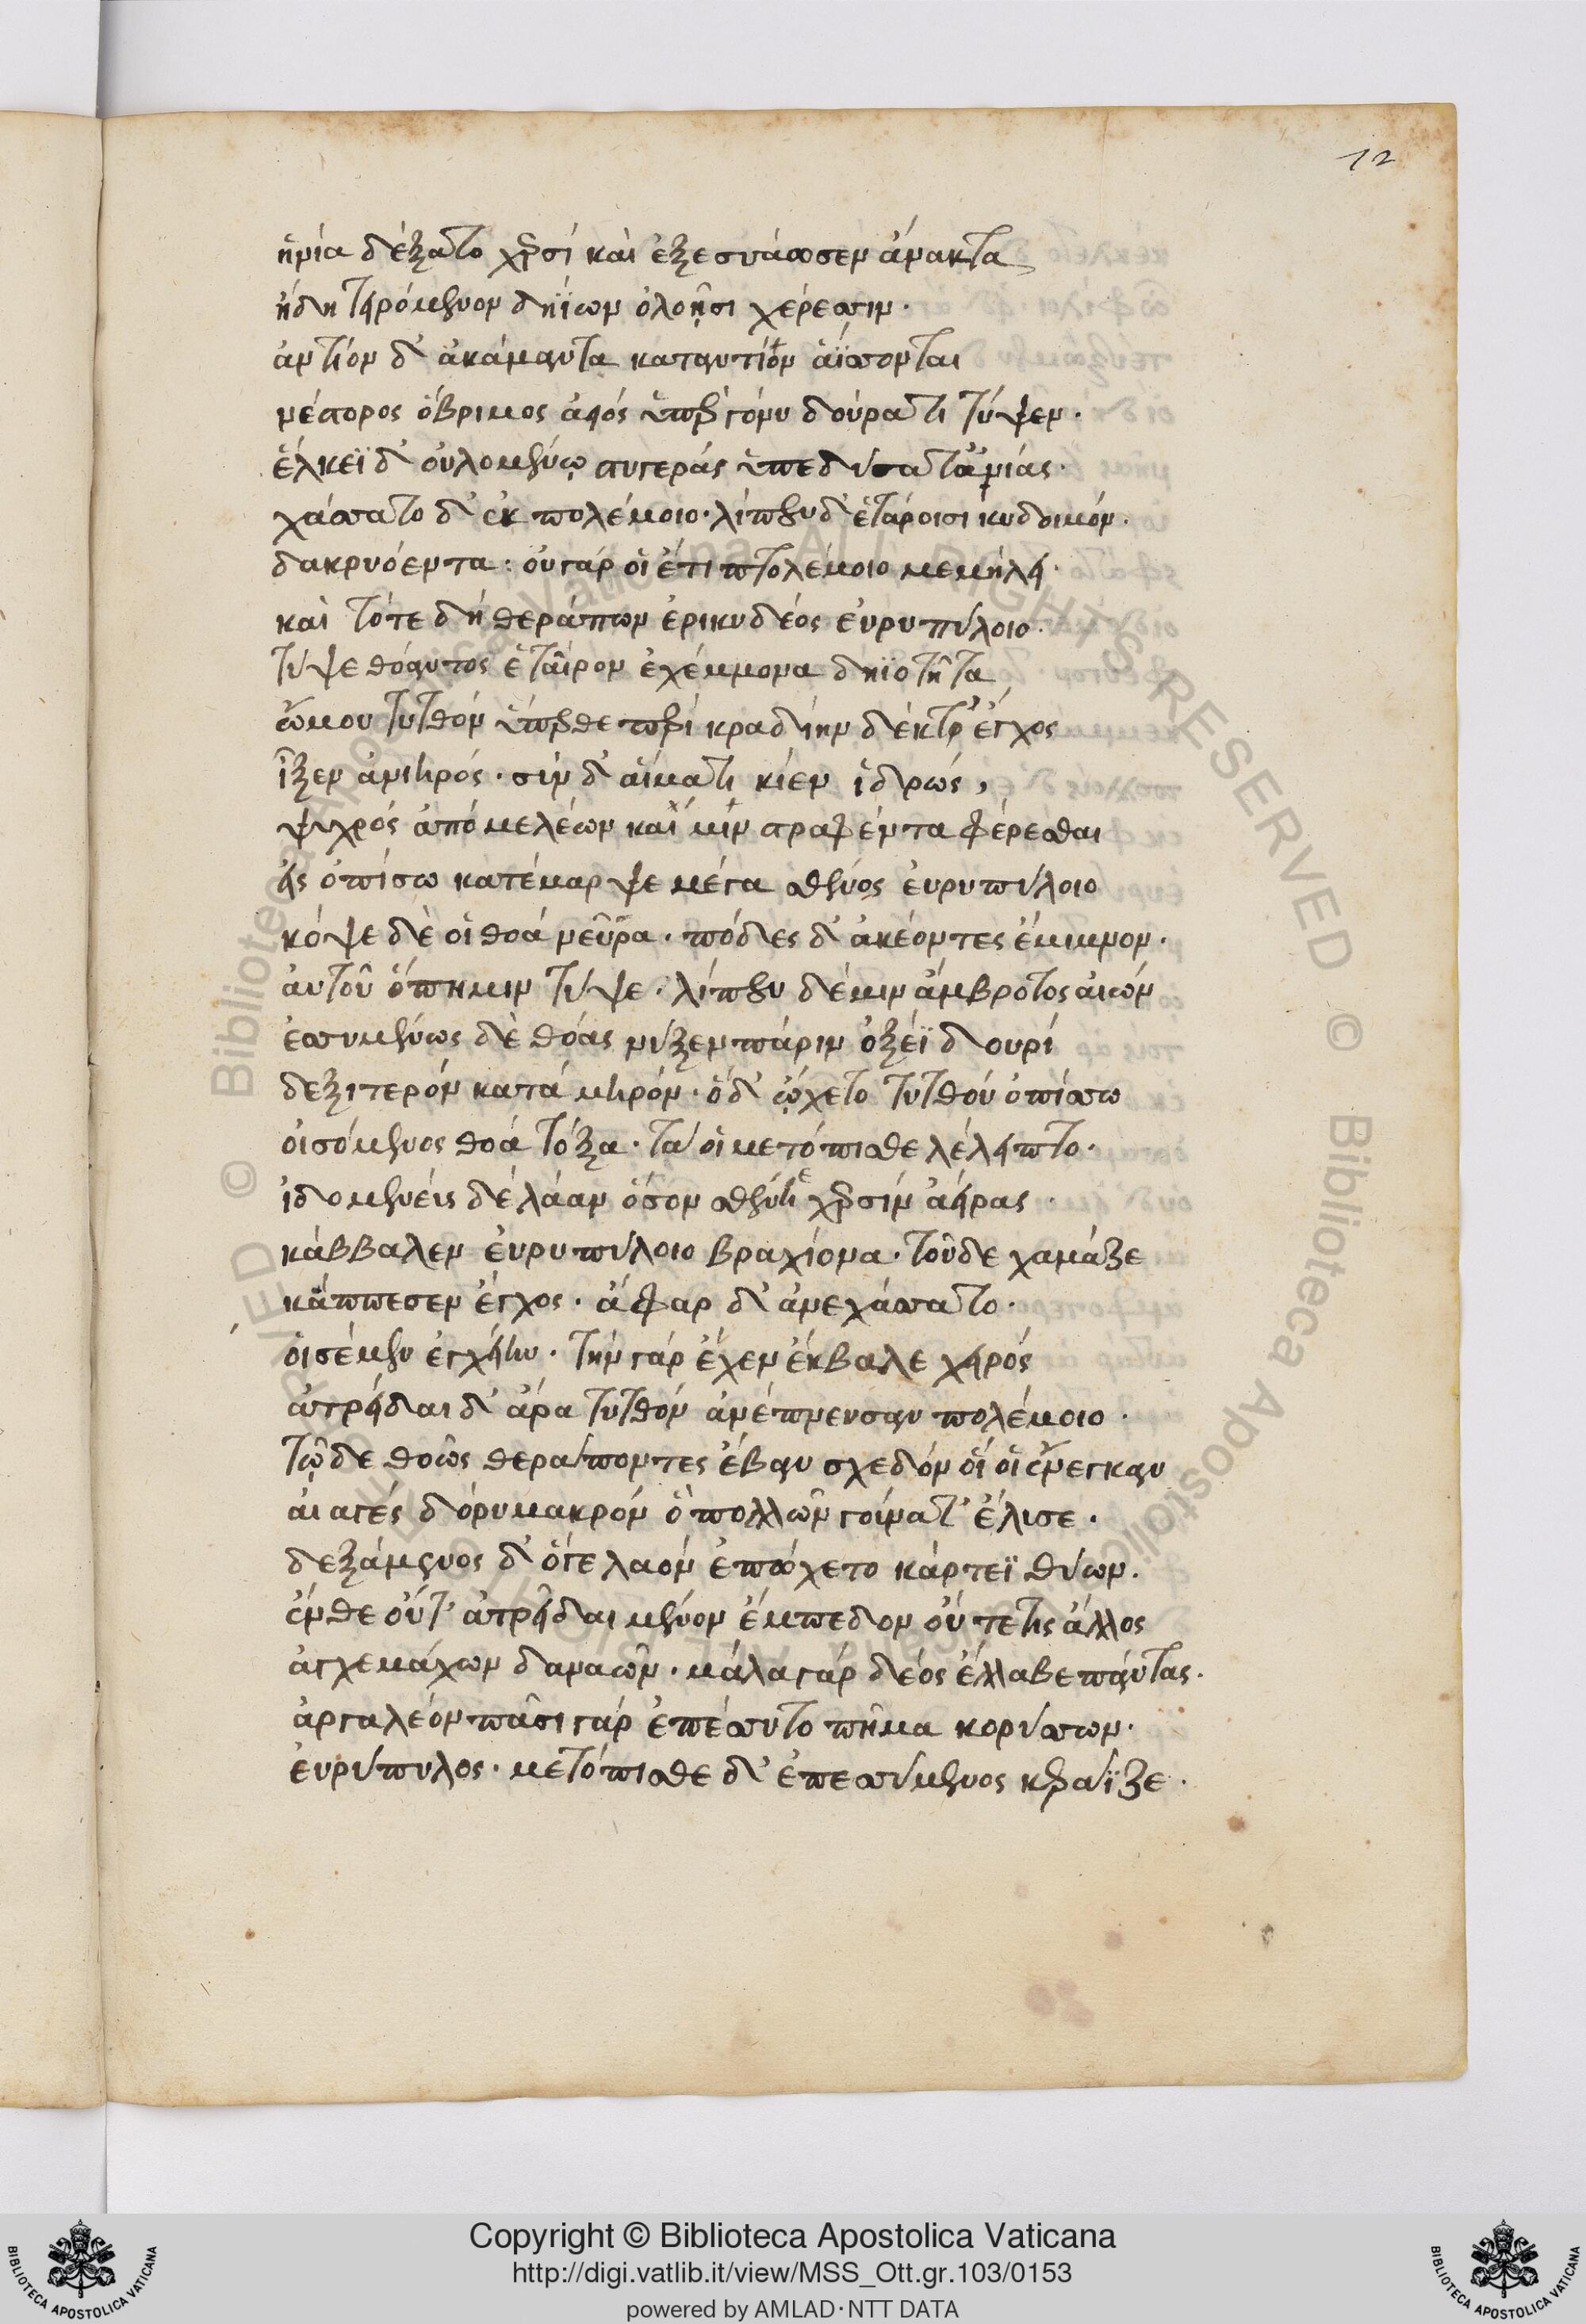 12
ἡνία δέξατο χερσὶ καὶ ἐξεσάωσεν ἄνακτα
ἤδη τειρόμενον δηΐων ὀλοῇσι χέρεσσιν.
ἀντίον δ' ἀκάμαντα καταντίον ἀΐσσονται
νέστορος ὄβριμος υἱός ὑπὲρ γόνυ δούρατι τύψεν.
ἕλκεϊ δ' οὐλομένῳ στυγεράς ὑπεδύσατ' ἀνίας.
χάσσατο δ' ἐκ πολέμοιο. λίπεν δ' ἑτάροισι κυδοιμόν.
δακρυόεντα: οὐ γάρ οἱ ἔτι πτολέμοιο μεμήλει.
καὶ τότε δὴ θεράπων ἐρικυδέος εὐρυπύλοιο.
τύψε θόαντος ἑταῖρον ἐχέμμονα δηϊοτῆτα
ὤμου τυτθόν ὑπερθε περὶ κραδίην δέ κτρ' ἔγχος
ἷξεν ἀνιηρός. σύν δ' αἵματι κίεν ἱδρώς,
ψυχρός ἀπό μελέων καί μιν στραφέντα φέρεσθαι
εἰς ὀπίσω κατέμαρψε μέγα σθένος εὐρυπύλοιο
κόψε δὲ οἱ θοά νεῦρα. πόδες δ' ἀκέοντες ἔμιμνον.
αὐτοῦ ὅπη μιν τύψε. λίπεν δέ μιν ἄμβροτος αἰών
ἐσσυμένως δὲ θόας νύξεν πάριν ὀξέϊ δουρί
δεξιτερόν κατά μηρόν. ὁ δ' ᾤχετο τυτθόν ὀπίσσω
οἰσόμενος θοά τόξα. τά οἱ μετόπισθε λέλειπτο.
ἰδομενεύς δέ λᾶαν ὅσον σθένε χερσίν ἀείρας.
κάββαλεν εὐρυπύλοιο βραχίονα. τοῦ δε χαμάζε
κάππεσεν ἔγχος. ἄφαρ δ' ἀνεχάσσατο.
οἰσέμεν ἐγχείην. τήν γάρ ἔχεν ἔκβαλε χειρός
ἀτρείδαι δ' ἄρα τυτθόν ἀνέπνευσαν πολέμοιο.
τῷ δε θοῶς θεράποντες ἔβαν σχεδόν οἵ οἱ ἔνεγκαν
αἰαγές δόρυ μακρόν ὃ πολλῶν γούνατ' ἔλυσε.
δεξάμενος δ' ὅγε λαόν ἐπῴχετο κάρτεϊ θύων.
ἔνθε οὔτ' ἀτρεῖδαι μένον ἔμπεδον οὔτε τις ἄλλος
ἀγχεμάχων δαναῶν. μάλα γάρ δέος ἔλλαβε πάντας.
ἀργαλέον πᾶσι γάρ ἐπέσσυτο πῆμα κορύσσων.
εὐρύπυλος. μετόπισθε δ' ἐπεσσύμενος κεράϊζε.
Copyright © Biblioteca Apostolica Vaticana
http://digi.vatlib.it/view/MSS_Ott.gr.103/0153
powered by AMLAD·NTT DATA
BIBLIOTECA APOSTOLICA VATICANA
BIBLIOTECA APOSTOLICA VATICANA